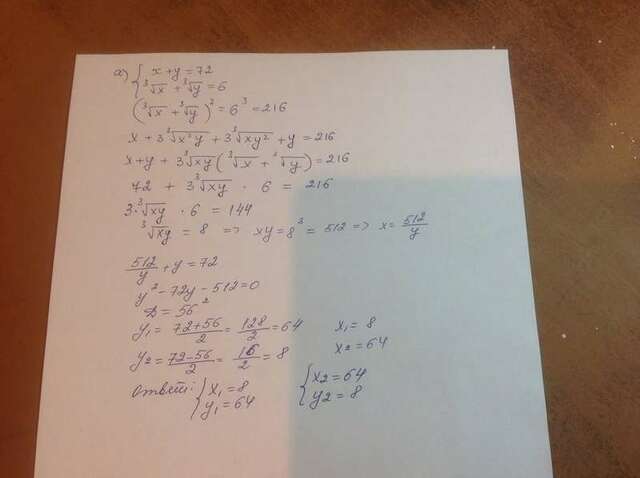 а) { x + y = 72
∛x + ∛y = 6
(∛x + ∛y)² = 6³ = 216
x + 3∛x²y + 3∛xy² + y = 216
x + y + 3∛xy (∛x + ∛y) = 216
72 + 3∛xy · 6 = 216
3·∛xy · 6 = 144
∛xy = 8 => xy = 8³ = 512 => x = 512/y
512/y + y = 72
y² - 72y - 512 = 0
D = 56²
y₁ = (72+56)/2 = 128/2 = 64 x₁ = 8
y₂ = (72-56)/2 = 16/2 = 8 x₂ = 64
ответ: { x₁ = 8 { x₂ = 64
y₁ = 64 y₂ = 8